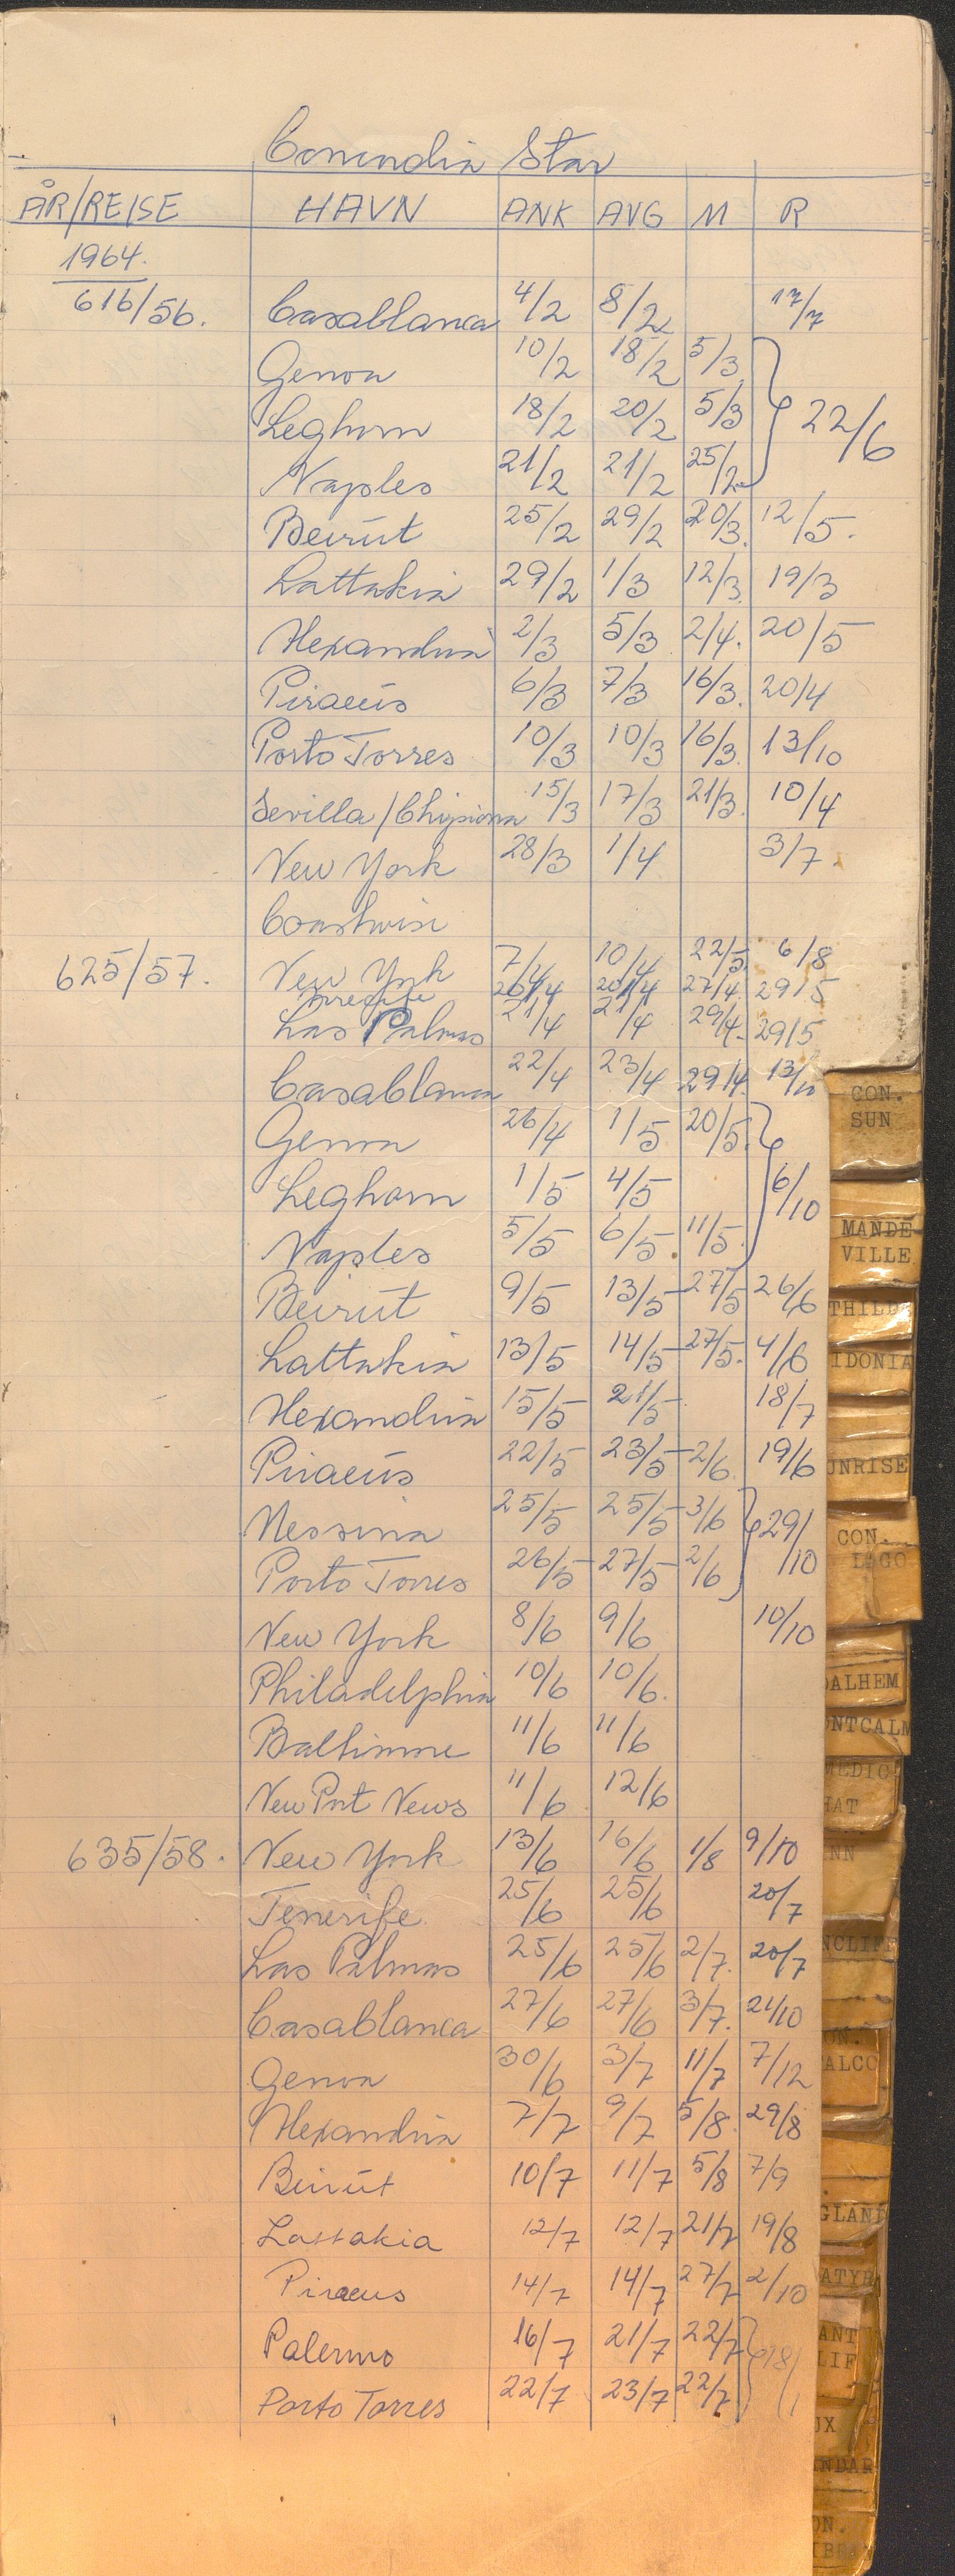 Conendia Star
ÅR/REISE HAVN ANK AVG M R
1964.
616/56. Casablanca 4/2 8/2 17/7
Genoa 10/2 18/2 5/3
Leghorn 18/2 20/2 5/3 22/6
Naples 21/2 21/2 25/2
Beirut 25/2 29/2 20/3. 12/5.
Lattakia 29/2 1/3 12/3. 19/3
Alexandria 2/3 5/3 2/4. 20/5
Piraeus 6/3 7/3 16/3. 20/4
Porto Torres 10/3 10/3 16/3. 13/10
Sevilla/Chipiona 15/3 17/3 21/3. 10/4
New York 28/3 1/4 3/7.
Coastwise
625/57. New York 7/4 10/4 22/5. 6/8
20/4 20/4 27/4. 29/5
Las Palmas 21/4 21/4 29/4. 29/5
Casablanca 22/4 23/4 29/4.
Genoa 26/4 1/5 20/5.
Leghorn 1/5 4/5 6/10
Naples 5/5 6/5. 11/5.
Beirut 9/5 13/5 27/5 26/6
Lattakia 13/5 14/5 27/5. 4/6
Alexandria 15/5 21/5 18/7
Piraeus 22/5 23/5 2/6. 19/6
Messina 25/5 25/5 3/6 29/10
Porto Torres 26/5 27/5 2/6
New York 8/6 9/6 10/10
Philadelphia 10/6 10/6.
Baltimore 11/6 11/6
New Port News 11/6 12/6
635/58. New York 13/6 16/6 1/8 9/10
Tenerife 25/6 25/6 20/7
Las Palmas 25/6 25/6 2/7. 20/7
Casablanca 27/6 27/6 3/7. 21/10
Genoa 30/6 3/7 11/7 7/12
Alexandria 7/7 9/7 5/8 29/8
Beirut 10/7 11/7 5/8 7/9
Lattakia 12/7 12/7 21/7 19/8
Piraeus 14/7 14/7 27/7 2/10
Palermo 16/7 21/7 22/7 18/1
Porto Torres 22/7 23/7 22/7
CON.
SUN
MANDE
VILLE
THILD
IDONIA
UNRISE
CON.
LAGO
DALHEM
ONTCALM
MEDIC
HAT
NN
NCLIFF
ON.
ALCO
GLAND
ATYR
ANT
LIF
UX
ANDAR
ON.